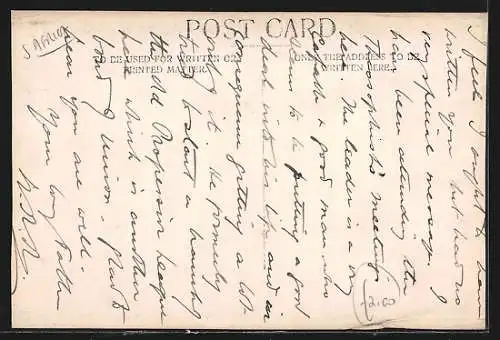 POST CARD
TO BE USED FOR WRITTEN OR
PRINTED MATTER.
ONLY THE ADDRESS TO BE
WRITTEN HERE.
S AFRICA
I feel I ought to have
written you but had no
very special message. I
have been attending the
Theosophists' meetings
here. The leader is a very
capable & good man who
seems to be putting a good
deal into his life and in
consequence getting a lot
it. He formerly
to start a branch
the Old League
here which is another
bond of Union. Glad to
hear you are well.
Your Father
2.00